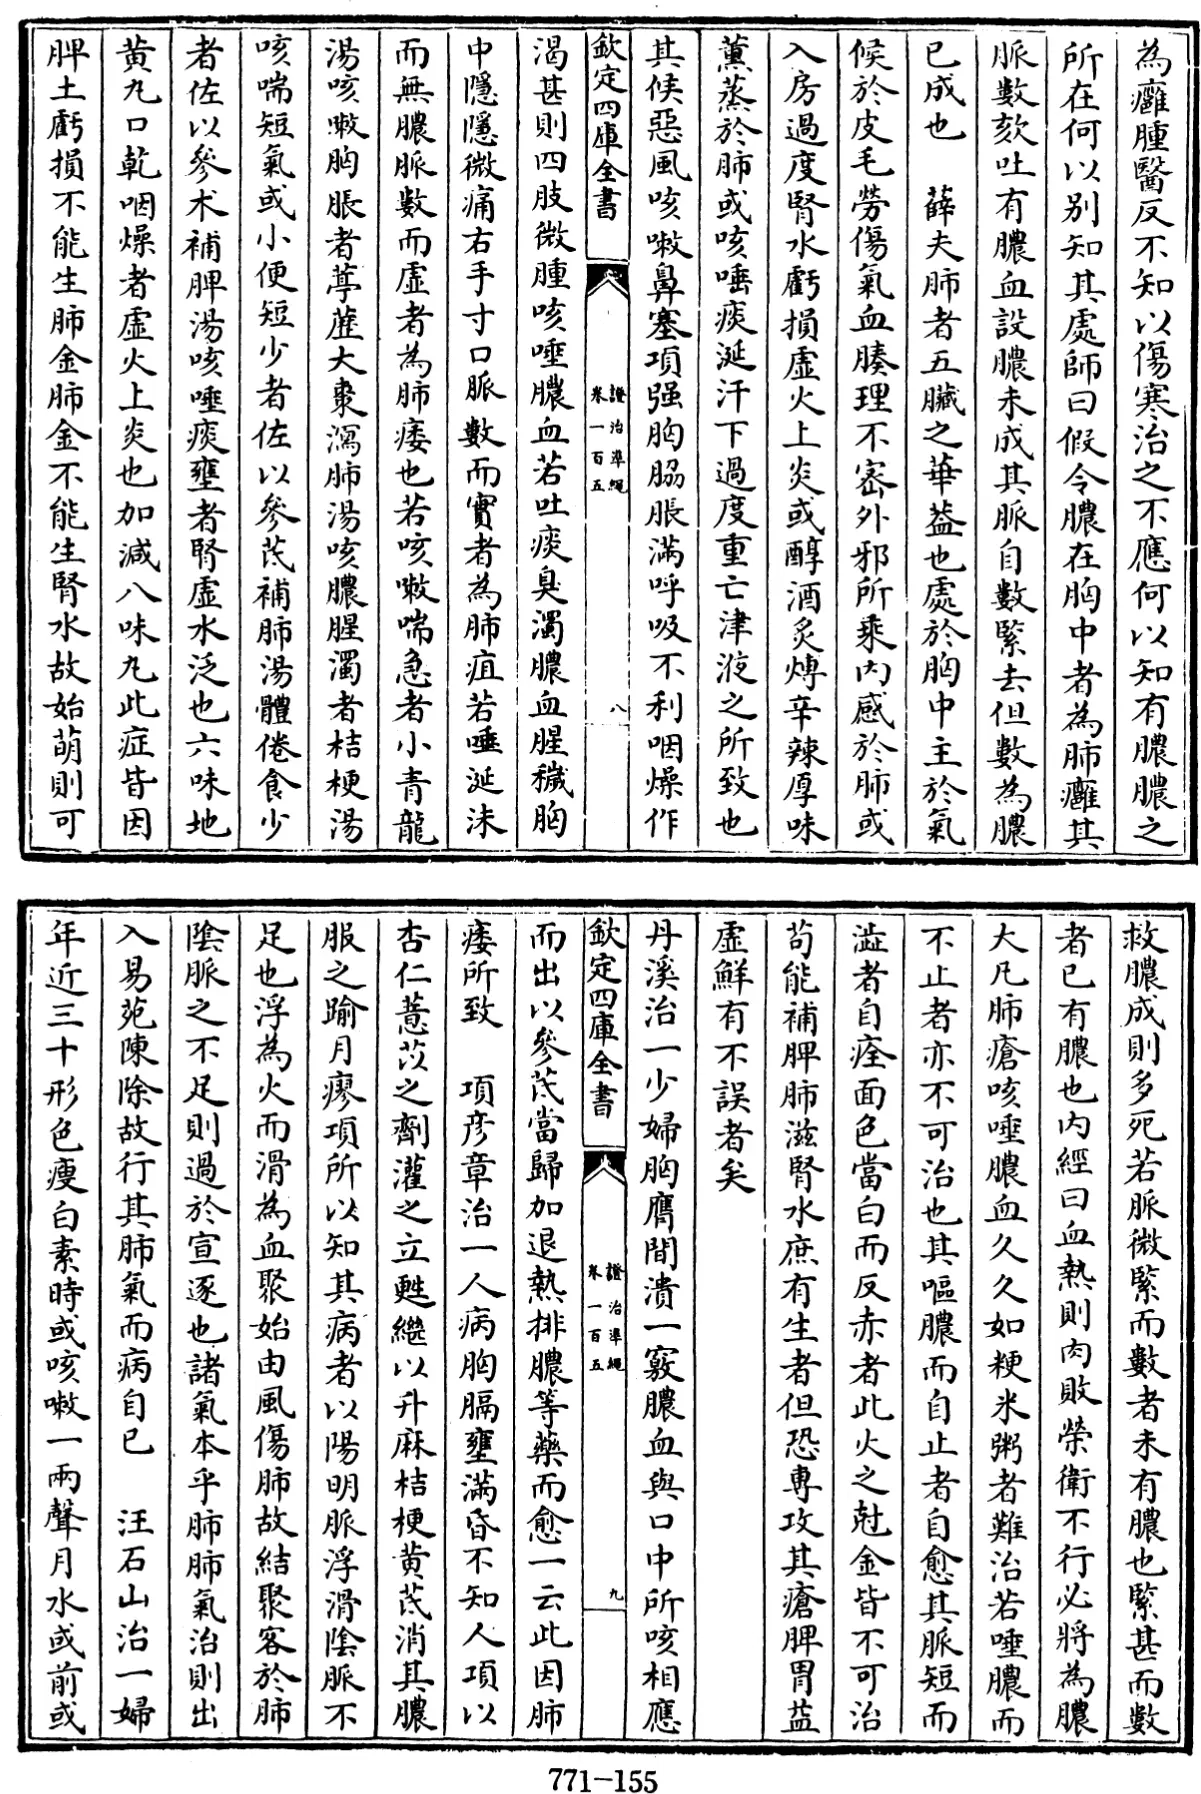 為癰腫醫反不知以傷寒治之不應何以知有膿膿之
所在何以別知其處師曰假令膿在胸中者為肺癰其
脈數欬吐有膿血設膿未成其脈自數緊去但數為膿
已成也　薛夫肺者五臟之華葢也處於胸中主於氣
候於皮毛勞傷氣血腠理不宻外邪所乘内感於肺或
入房過度腎水虧損虛火上炎或醇酒炙煿辛辣厚味
薰蒸於肺或咳唾痰涎汗下過度重亡津液之所致也
其候惡風咳嗽鼻塞項强胸脇脹滿呼吸不利咽燥作
欽定四庫全書
證治準繩
卷一百五
八
渴甚則四肢微腫咳唾膿血若吐痰臭濁膿血腥穢胸
中隱隱微痛右手寸口脈數而實者為肺疽若唾涎沫
而無膿脈數而虛者為肺痿也若咳嗽喘急者小青龍
湯咳嗽胸脹者葶藶大棗瀉肺湯咳膿腥濁者桔梗湯
咳喘短氣或小便短少者佐以參芪補肺湯體倦食少
者佐以參术補脾湯咳唾痰壅者腎虛水泛也六味地
黄丸口乾咽燥者虛火上炎也加減八味丸此症皆因
脾土虧損不能生肺金肺金不能生腎水故始萌則可
救膿成則多死若脈微緊而數者未有膿也緊甚而數
者已有膿也内經曰血熱則肉敗榮衛不行必將為膿
大凡肺瘡咳唾膿血久久如粳米粥者難治若唾膿而
不止者亦不可治也其嘔膿而自止者自愈其脈短而
澁者自痊面色當白而反赤者此火之尅金皆不可治
苟能補脾肺滋腎水庶有生者但恐專攻其瘡脾胃益
虛鮮有不誤者矣
丹溪治一少婦胸膺間潰一竅膿血與口中所咳相應
欽定四庫全書
證治準繩
卷一百五
九
而出以參芪當歸加退熱排膿等藥而愈一云此因肺
痿所致　項彦章治一人病胸膈壅滿昏不知人項以
杏仁薏苡之劑灌之立甦繼以升麻桔梗黄芪消其膿
服之踰月瘳項所以知其病者以陽明脈浮滑陰脈不
足也浮為火而滑為血聚始由風傷肺故結聚客於肺
陰脈之不足則過於宣逐也諸氣本乎肺肺氣治則出
入易菀陳除故行其肺氣而病自已　汪石山治一婦
年近三十形色瘦白素時或咳嗽一兩聲月水或前或
771-155